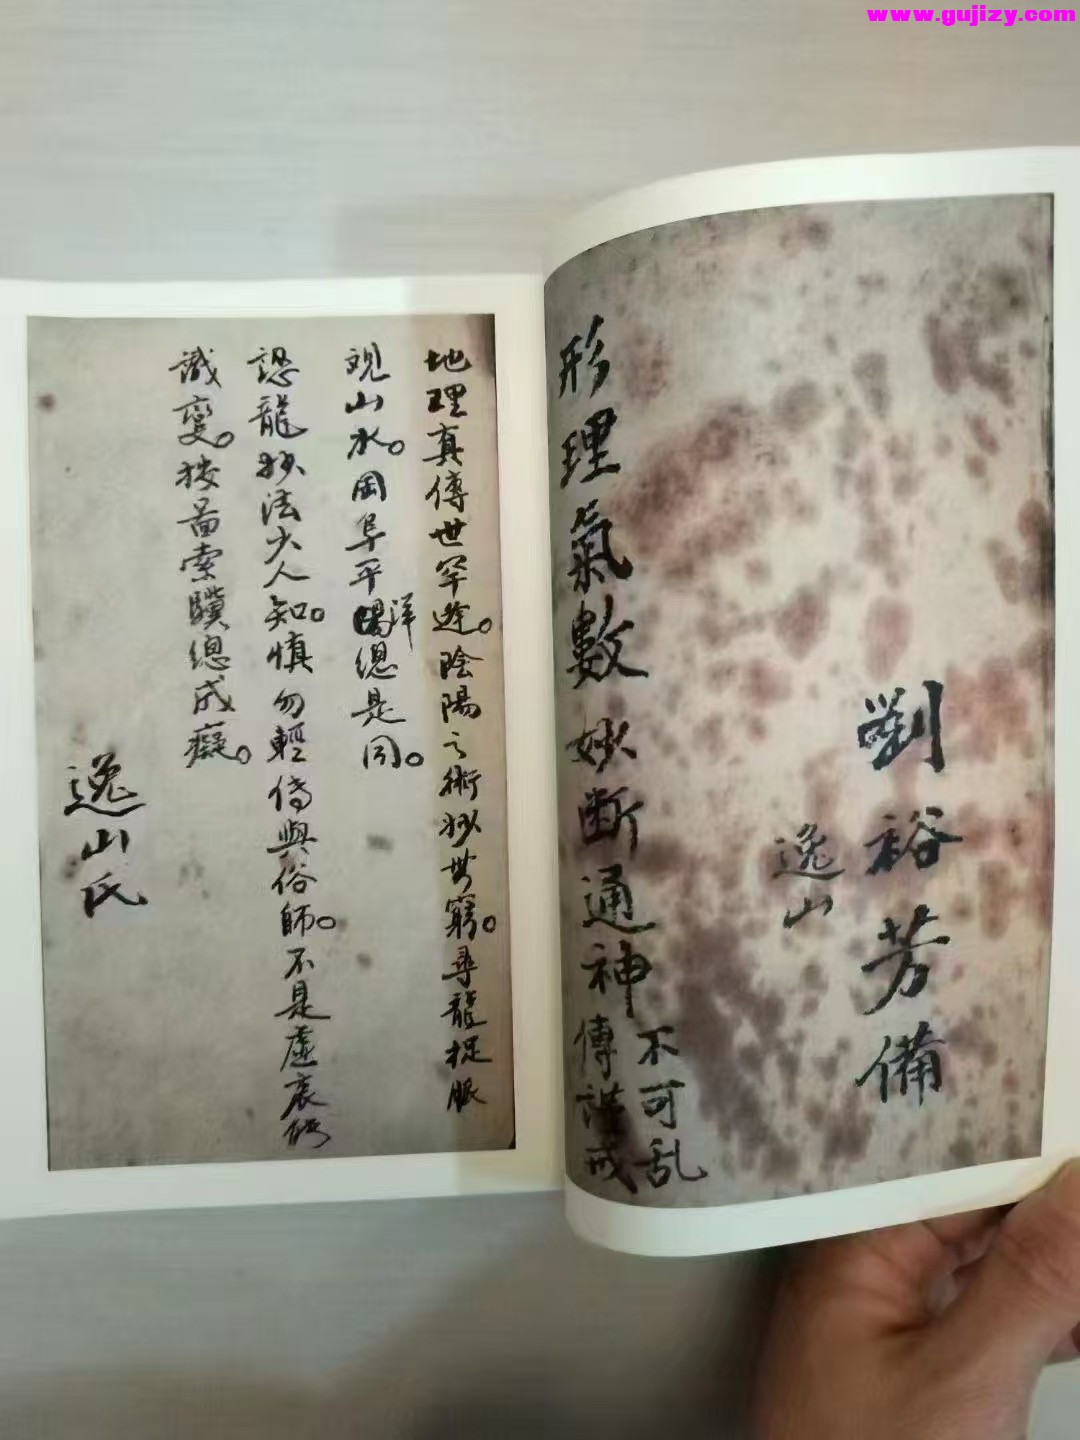 www.gujizy.com
劉裕芳備
逸山
形理氣數妙断通神
不可乱
傳謹戒
地理真傳世罕逢。陰陽之術妙無窮。尋龍捉脈
观山水。岡阜平洋總是同。
認龍妙法少人知。慎勿輕傳與俗師。不是虛衷
識變。按畐索驥總成癡。
逸山氏